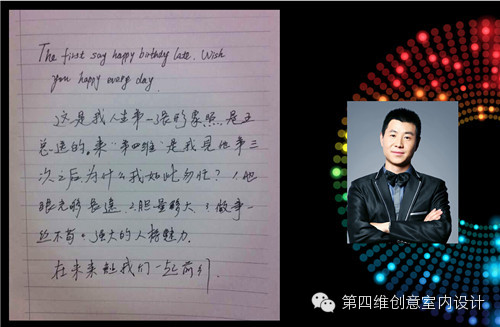 The first say happy birthday late. Wish
you happy every day.
这是我人生第一张形象照,是王
总送的。来“第四维”是我见他第三
次之后为什么我如此勿忙? 1.他
眼光够长远、2.胆量够大 3.做事一
丝不苟。强大的人格魅力.
在未来她我们一起前行.
第四维创意室内设计